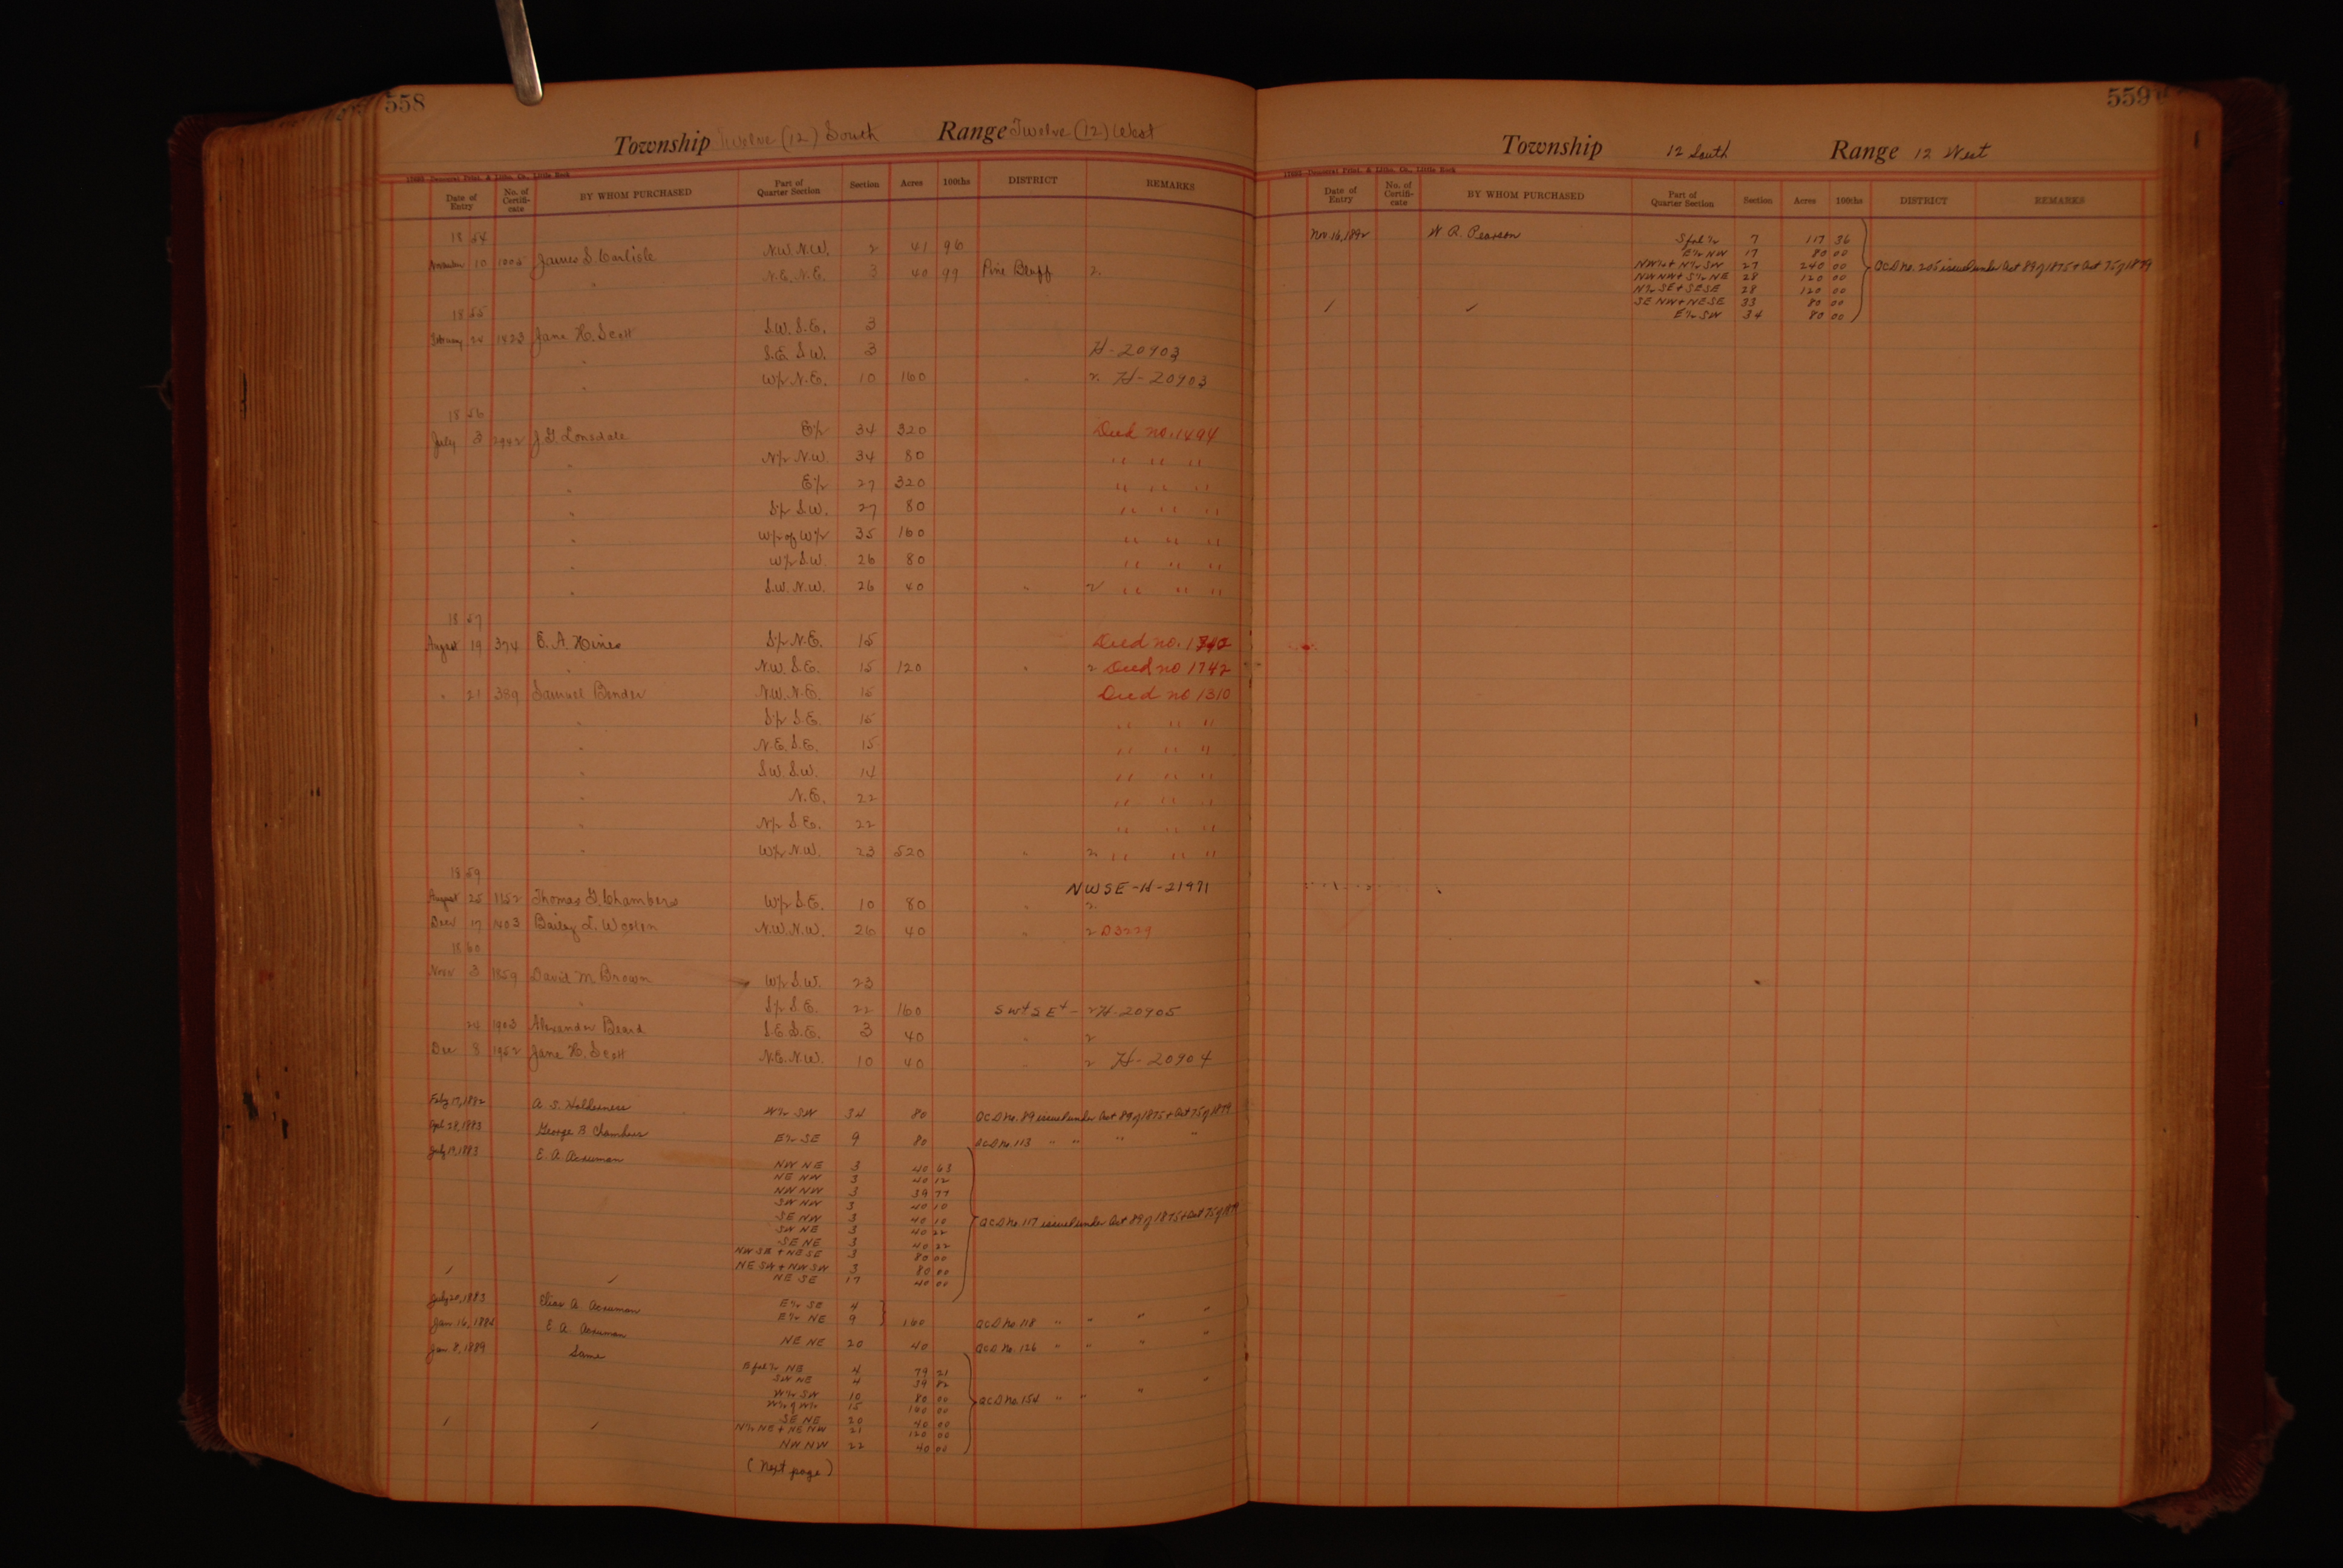 558
Township Twelve (12) South Range Twelve (12) West
Date of Entry No. of Certifi-cate BY WHOM PURCHASED Part of Quarter Section Section Acres 100ths DISTRICT REMARKS
18 54
November 10 1005 James S. Carlisle N.W. N.W. 2 41 96
" N.E. N.E. 3 40 99 Pine Bluff 2.
18 55
February 24 1423 Jane H. Scott S.W. S.E. 3
" S.E. S.W. 3 H-20903
" W½ N.E. 10 160 " 2. H-20903
18 56
July 3 2942 J. G. Lonsdale E½ 34 320 Deed no. 1494
" N½ N.W. 34 80 " " "
" E½ 27 320 " " "
" S½ S.W. 27 80 " " "
" W½ of W½ 35 160 " " "
" W½ S.W. 26 80 " " "
" S.W. N.W. 26 40 " 2 " " "
18 57
August 19 374 E. A. Hines S½ N.E. 15 Deed no. 1742
" N.W. S.E. 15 120 " 2 Deed no 1742
" 21 389 Samuel Bender N.W. N.E. 15 Deed no 1310
" S½ S.E. 15 " " "
" N.E. S.E. 15 " " "
" S.W. S.W. 14 " " "
" N.E. 22 " " "
" N½ S.E. 22 " " "
" W½ N.W. 23 520 " 2 " " "
18 59
NWSE-H-21971
August 25 1152 Thomas G. Chambers W½ S.E. 10 80 " 2.
Decr 17 1403 Bailey L. N.W. N.W. 26 40 " 2 D3229
18 60
Novr 3 1859 David M. Brown W½ S.W. 23
" S½ S.E. 22 160 SW+SE+ - 2 H-20905
24 1903 Alexander Beard S.E. S.E. 3 40 " 2
Dec 8 1952 Jane H. Scott N.E. N.W. 10 40 " 2 H-20904
Feby 17, 1882 A. S. Holderness W½ SW 34 80 QCD No. 89 issued under Act 89 of 1875 + Act 75 of 1879
Apl. 28, 1883 George B Chambers E½ SE 9 80 QCD No. 113 " " " "
July 19, 1883 E. A. Acruman
NW NE 3 40 63
NE NW 3 40 12
NW NW 3 39 77
SW NW 3 40 10
SE NW 3 40 10 QCD No. 117 issued under Act 89 of 1875 + Act 75 of 1879
SW NE 3 40 22
SE NE 3 40 22
NW SE + NE SE 3 80 00
NE SW + NW SW 3 80 00
NE SE 17 40 00
July 20, 1883 Elias A. Acruman E½ SE 4
E½ NE 9 160 QCD No. 118 " " " "
Jan. 16, E. A. Acruman NE NE 20 40 QCD No. 126 " " " "
Jan. 8, 1889 Same
frl ½ NE 4 79 21
SW NE 4 39 82
W½ SW 10 80 00 QCD No. 154 " " " "
W½ of W½ 15 160 00
SE NE 20 40 00
N½ NE + NE NW 21 120 00
NW NW 22 40 00
(Next page)
559
Township 12 South Range 12 West
Date of Entry No. of Certifi-cate BY WHOM PURCHASED Part of Quarter Section Section Acres 100ths DISTRICT REMARKS
Nov. 16, 1892 W. R. Pearson S frl ½ 7 117 36
E½ NW 17 80 00
NW¼ + N½ SW 27 240 00 QCD No. 205 issued under Act 89 of 1875 + Act 75 of 1879
NW NW + S½ NE 28 120 00
N½ SE + SE SE 28 120 00
SE NW + NE SE 33 80 00
E½ SW 34 80 00